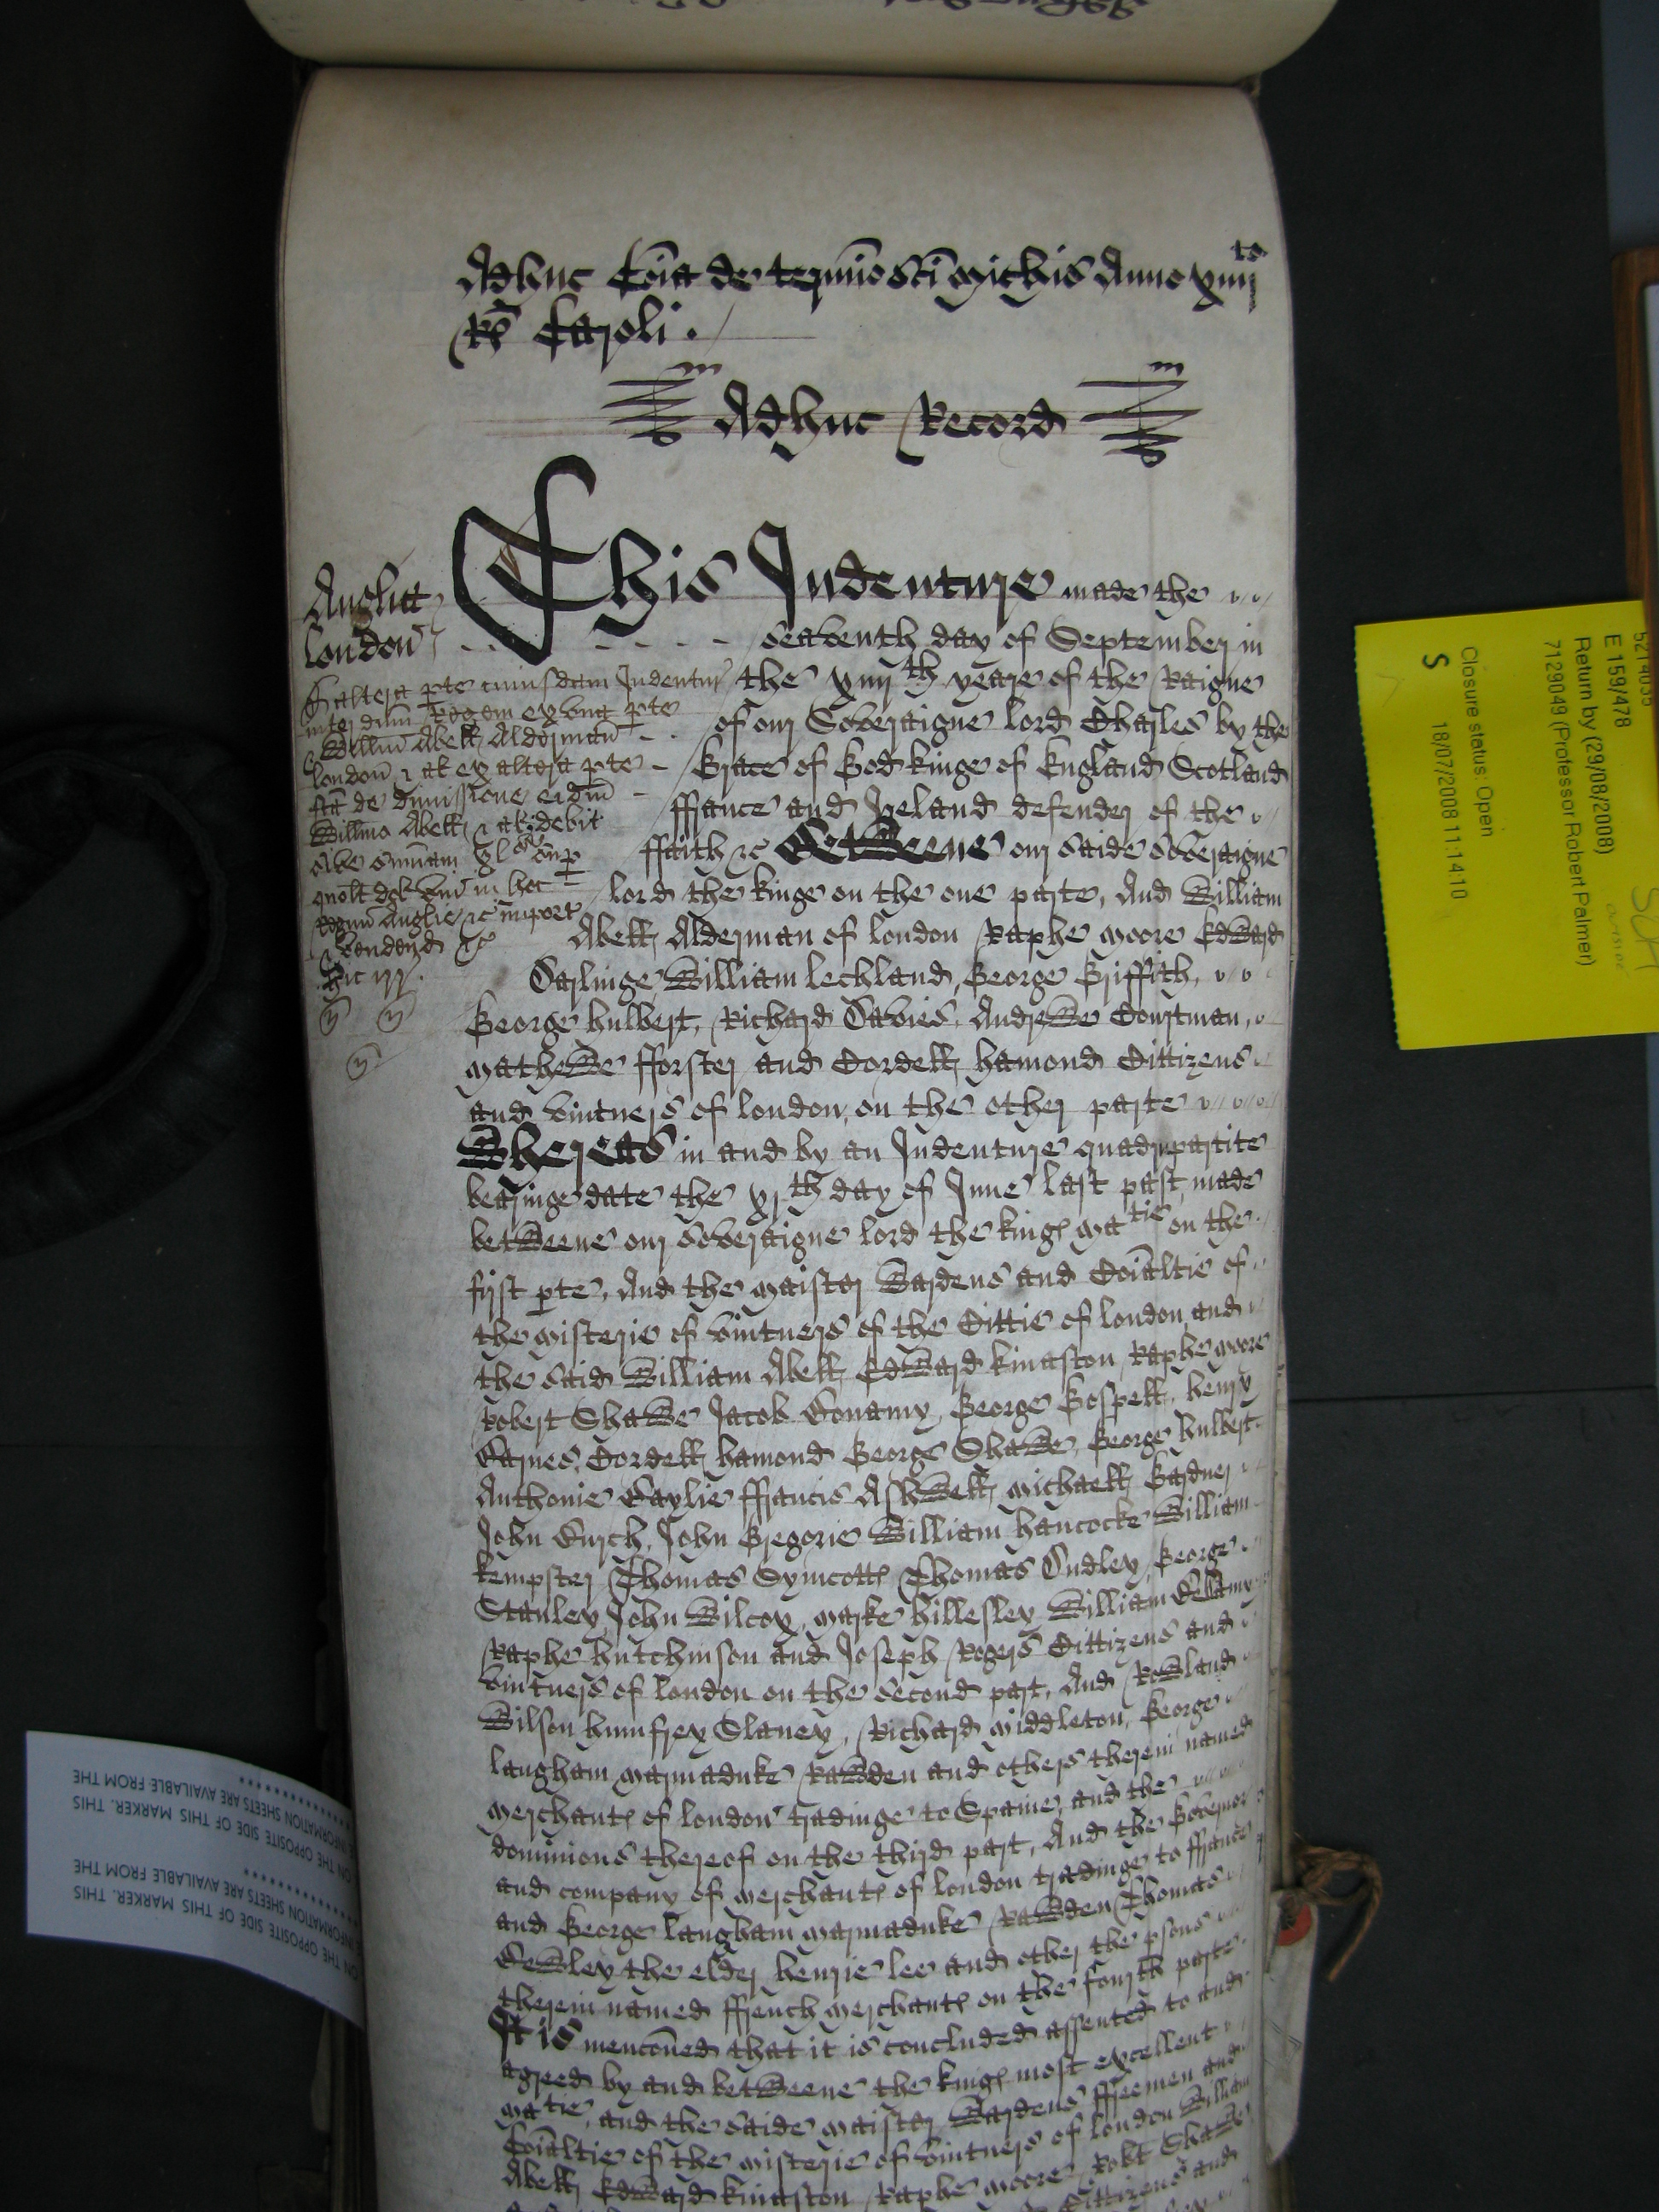 Adhuc Co͞ia de termino s͞ci Mich͞is Anno xiiij to
R͞s Caroli.
Adhuc Record
Anglia
London
This Indenture made the
Seaventh day of September in
the xiiij th yeare of the Raigne
of our Soveraigne lord Charles by the
Grace of God kinge of England Scotland
ffrance and Ireland defender of the
ffaith &c Betweene our saide Soveraigne
lord the kinge on the one parte, And William
Abell Alderman of london Raphe Moore Edward
Darlinge William Lechland, George Griffith,
George hulbert, Richard Davies, Andrewe Courtman,
Mathewe fforster and Cordell hamond Cittizens
and vintners of london, on the other parte
Whereas in and by an Indenture quadripartite
bearinge date the xj th day of June last past, made
betweene our Soveraigne lord the kings Ma tie on the
first pte, And the Maister Wardens and Co͞ialtie of
the Misterie of vintners of the Cittie of london, and
the said William Abell, Edward kinaston Raphe Moore
Robert Shawe Jacob Bonamy, George Gospell, henry
Barnes, Cordell hamond George Shawe, George hulbert
Anthonie Baylie ffrancis Ashwell, Michaell Gardner
John Burch, John Gregorie William hancocke William
kempster Thomas Symcotts Thomas Dudley, George
Stanley, John Wilcox, Marke hillesley William Bellamy
Raphe hutchinson and Joseph Rogers Cittizens and
vintners of london on the second part, And Rowland
Wilson humfrey Slaney, Richard Middleton, George
langham Marmaduke Rawden and others therein named
Merchants of london tradinge to Spaine, and the
dominions thereof on the third part, And the Governor
and company of Merchants of london tradinge to ffrance
and George langham Marmaduke Rawden Thomas
Bewley the elder henrie lee and other the psons
therein named ffrench Merchants on the fourth parte
It is menco͞ned that it is concluded assented to and
agreed by and betweene the kings most excellent
Ma tie, and the saide Maister Wardens ffreemen and
Co͞ialtie of the Misterie of vintners of london William
Abell, Edward kinaston Raphe Moore Rob͞t Shawe
Cittizens and
& altera pte cuiusdam Indentur
inter d͞um Regem ex una pte
& Will͞um Abell Alderman
london & al ex altera pte
f͞ca de dimissione eidm
Will͞mo Abell & al debit
sive summam xl s
Regnu͞ Anglie &c import
vendend &c
THE OPPOSITE SIDE OF THIS MARKER. THIS
INFORMATION SHEETS ARE AVAILABLE FROM THE
ON THE OPPOSITE SIDE OF THIS MARKER. THIS
INFORMATION SHEETS ARE AVAILABLE FROM THE
E 159/478
Return by (29/08/2008)
7129049 (Professor Robert Palmer)
Closure status: Open
18/07/2008 11:14:10
S